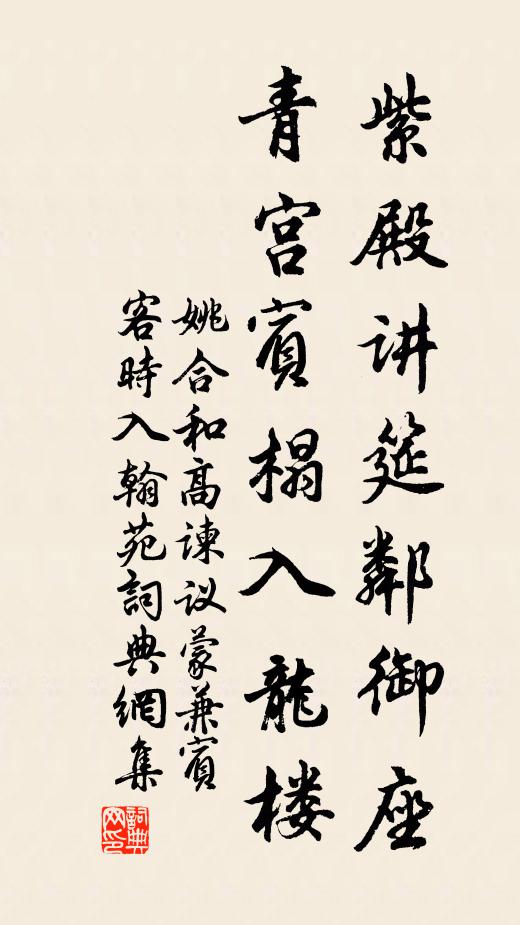 紫殿讲筵鄰御座
青宫賓榻入龍楼
姚合和高諫议蒙兼賓
客時入翰苑詞典網集
詞典网印